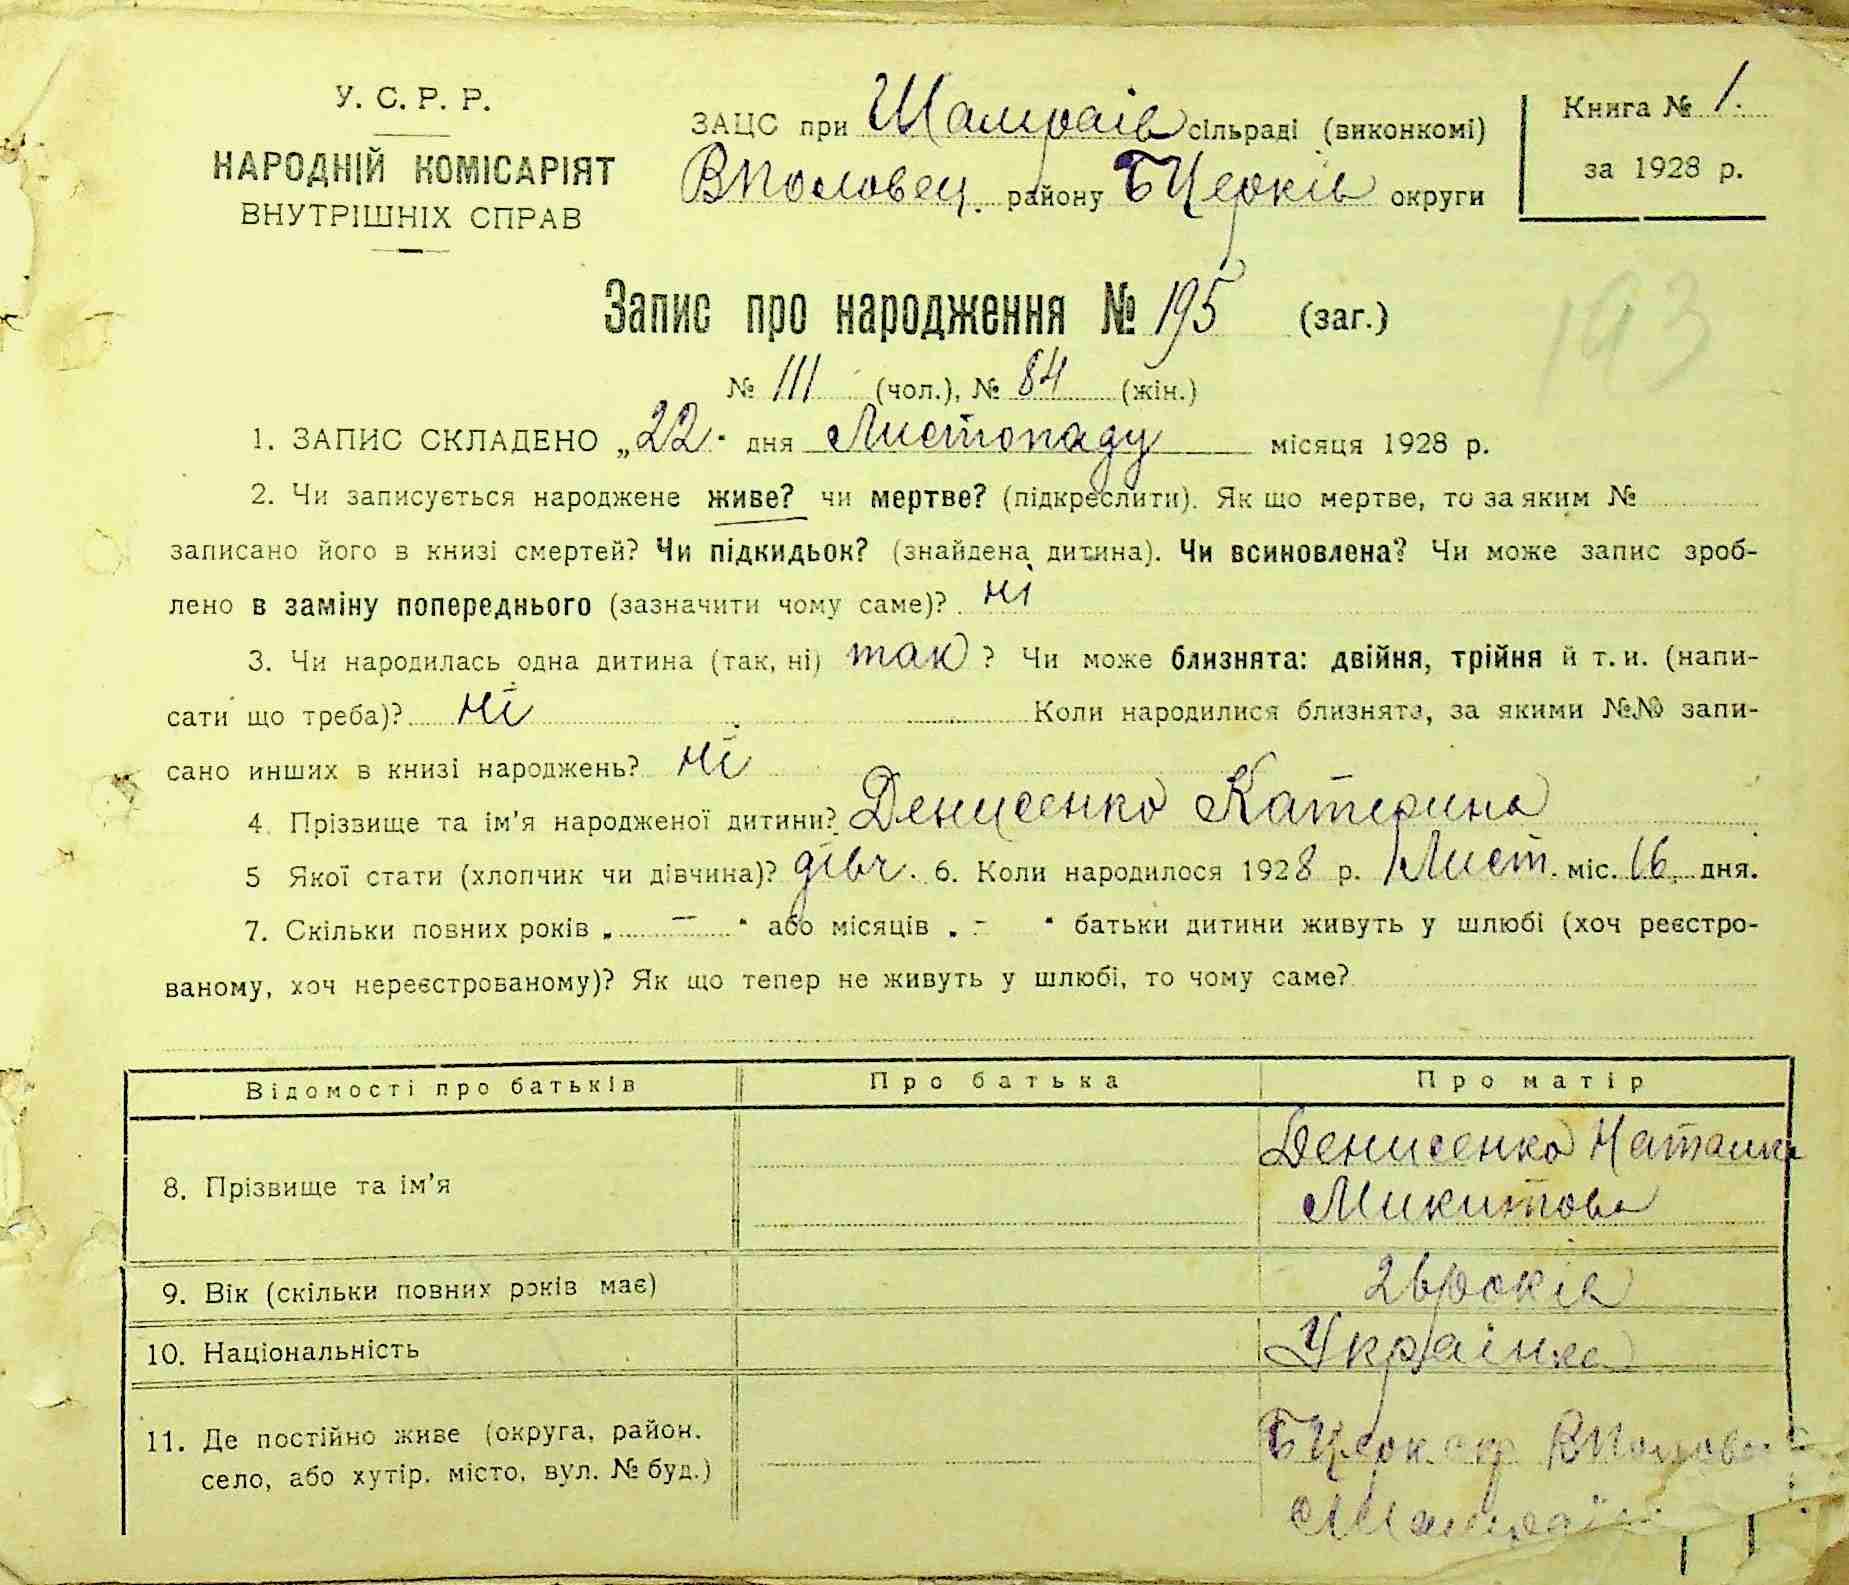 У. С. Р. Р.
НАРОДНІЙ КОМІСАРІЯТ
ВНУТРІШНІХ СПРАВ
ЗАЦС при Шамраїв сільраді (виконкомі)
ВПоловец. району БЦерків округи
Книга № 1.
за 1928 р.
Запис про народження № 195 (заг.)
193
№ 111 (чол.), № 84 (жін.)
1. ЗАПИС СКЛАДЕНО „22" дня Листопаду місяця 1928 р.
2. Чи записується народжене живе? чи мертве? (підкреслити). Як що мертве, то за яким №
записано його в книзі смертей? Чи підкидьок? (знайдена дитина). Чи всиновлена? Чи може запис зроб-
лено в заміну попереднього (зазначити чому саме)? ні
3. Чи народилась одна дитина (так, ні) так ? Чи може близнята: двійня, трійня й т. и. (напи-
сати що треба)? ні Коли народилися близнята, за якими №№ запи-
сано инших в книзі народжень? ні
4. Прізвище та ім'я народженої дитини? Денисенко Катерина
5 Якої стати (хлопчик чи дівчина)? дівч. 6. Коли народилося 1928 р. Лист. міс. 16 дня.
7. Скільки повних років „ — " або місяців „ - " батьки дитини живуть у шлюбі (хоч реєстро-
ваному, хоч нереєстрованому)? Як що тепер не живуть у шлюбі, то чому саме?
Відомості про батьків Про батька Про матір
8. Прізвище та ім'я Денисенко Наталка
Микитова
9. Вік (скільки повних років має) 26 років
10. Національність Українка
11. Де постійно живе (округа, район,
село, або хутір, місто, вул. № буд.)
БЦерк. окр ВПолове